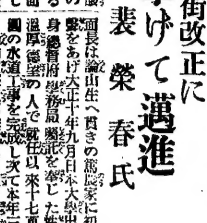 街改正に
げて邁進
裴榮春氏
面長は論山生へ貫きの篤農家に初
聲をあげ大正十年九月日本大學出
身總督府學務局 職を奉じた
温厚德望の人で就任以來十七
圓の水道工事を完成し次て本年三